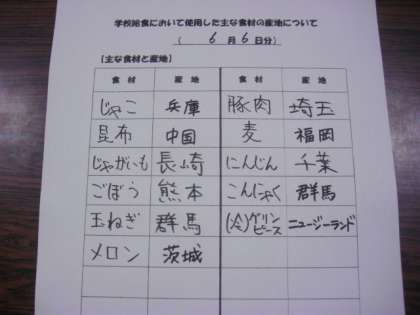 学校給食において使用した主な食材の産地について
( 6月6日分)
【主な食材と産地】
食材 産地 食材 産地
じゃこ 兵庫 豚肉 埼玉
昆布 中国 麦 福岡
じゃがいも 長崎 にんじん 千葉
ごぼう 熊本 こんにゃく 群馬
玉ねぎ 群馬 (冷)グリンピース ニュージーランド
メロン 茨城